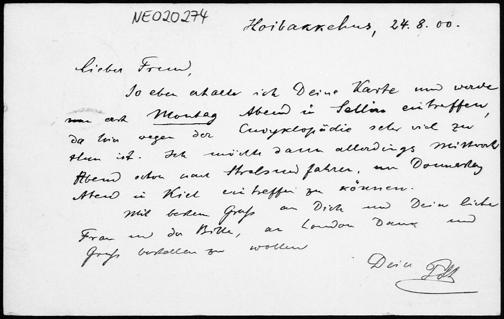 NE020274
Hoibakkehus, 24.8.00.
Lieber Freund,
So eben erhalte ich Deine Karte und werde
erst Montag Abend in Sellin eintreffen,
da hier wegen der Encyklopädie sehr viel zu
thun ist. Ich möchte dann allerdings Mittwoch
Abend schon nach Stralsund fahren, um Donnerstag
Abend in Kiel eintreffen zu können.
Mit bestem Gruß an Dich und Deine liebe
Frau und der Bitte, an London Dank und
Gruß bestellen zu wollen
Dein